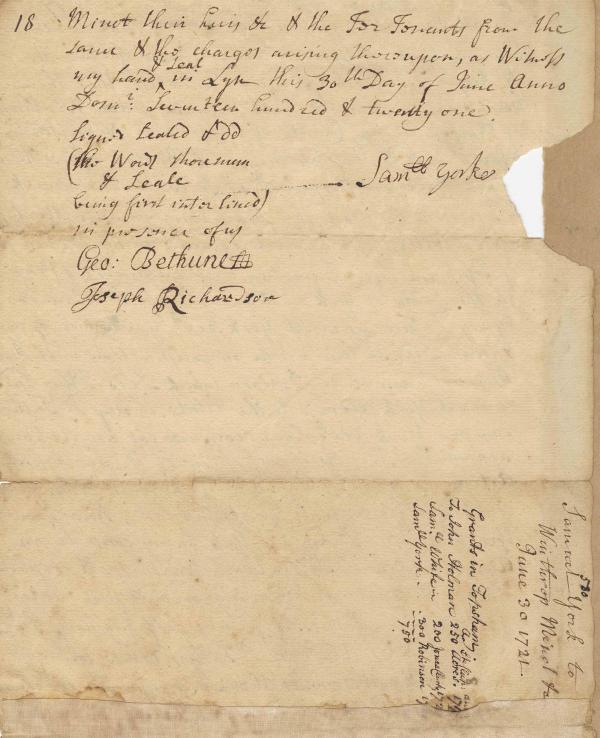 18 Minot their heirs &c & the Ter Tenants from the
same & the charges arising thereupon, as Witness
& Seal
my hand in Lyn this 30th Day of June Anno
Domi: Seventeen hundred & twenty one.
Signed Sealed & dd
(the Words
& Seale
being first interlined)
Samll York
in presence of us
Geo: Bethune
Joseph Richardson
Samuel York to
Winthrop Minot &a
June 30 1721.
500
Grants in Topsham:
To John Holman 250 Acres.
Samll White in 200
Samll York .. 300 Robinson
750